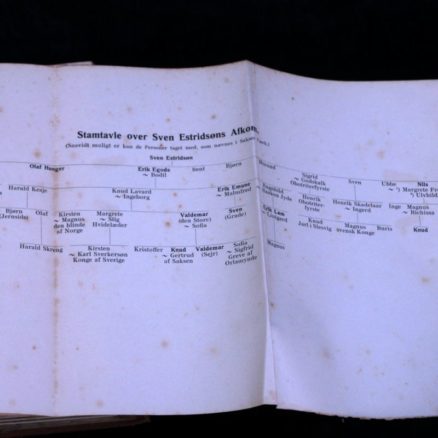 Stamtavle over Sven Estridsøns Afkom.
(Saavidt muligt er kun de Personer taget med, som nævnes i Saksos Værk.)
Sven Estridsøn
Olaf Hunger Erik Egode ~ Bodil Svend Bjørn Sigrid ~ Godskalk Obotriterfyrste Sven Ubbe Nils
Harald Kesje Knud Lavard ~ Ingeborg Erik Emune ~ Malmfred Henrik Obotriter-fyrste Henrik Skadelaar ~ Ingerd Inge Magnus ~ Richissa
Bjørn (Jernside) Olaf Kirsten ~ Magnus den Blinde af Norge Margrete ~ Stig Hvidelæder Valdemar (den Store) ~ Sofia Sven (Grade) Erik Lam Knud Jarl i Slesvig Magnus svensk Konge Buris Knud
Harald Skreng Kirsten ~ Karl Sverkerson Konge af Sverige Kristoffer Knud ~ Gertrud af Saksen Valdemar (Sejr) Sofia ~ Sigfrid Greve af Orlamynde Magnus